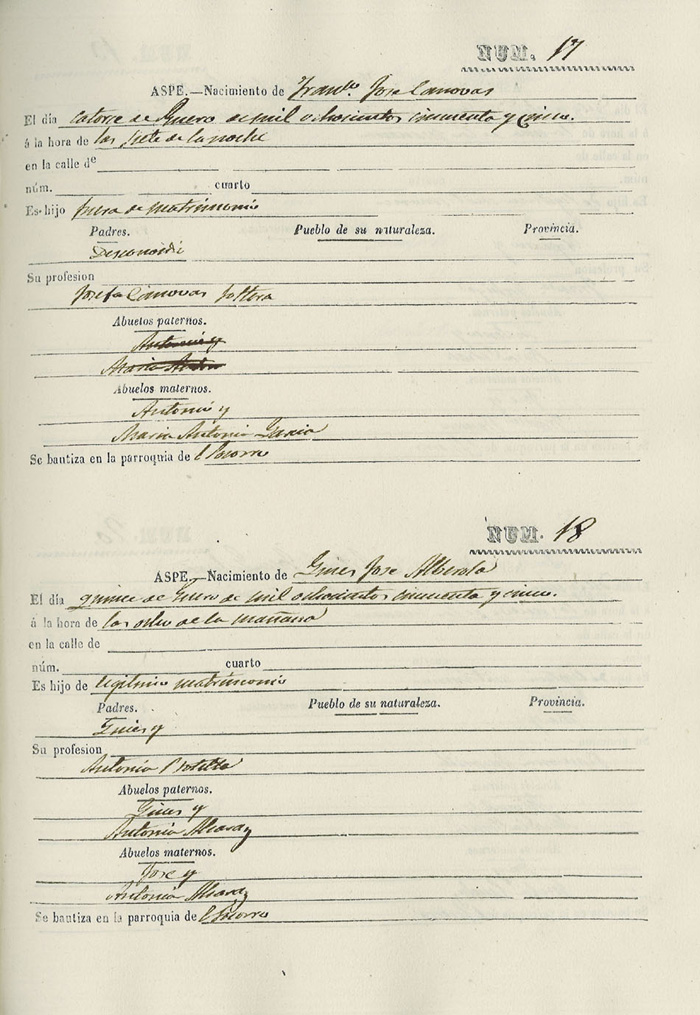 NUM. 17
ASPE.—Nacimiento de Franco Jose Canovas
El dia catorce de Enero de mil ochocientos cincuenta y cinco.
á la hora de las siete de la noche
en la calle de
núm. cuarto
Es hijo fuera de matrimonio
Padres. Pueblo de su naturaleza. Provincia.
Desconocido
Su profesion
Josefa Canovas soltera
Abuelos paternos.
Antonio y
Maria
Abuelos maternos.
Antonio y
Maria Antonia Garcia
Se bautiza en la parroquia de el Socorro
NUM. 18
ASPE.—Nacimiento de Gines Jose Alberola
El dia quince de Enero de mil ochocientos cincuenta y cinco.
á la hora de las ocho de la mañana
en la calle de
núm. cuarto
Es hijo de legitimo matrimonio
Padres. Pueblo de su naturaleza. Provincia.
Gines y
Su profesion
Antonia
Abuelos paternos.
Gines y
Antonia Alcaraz
Abuelos maternos.
Jose y
Antonia Alcaraz
Se bautiza en la parroquia de el Socorro